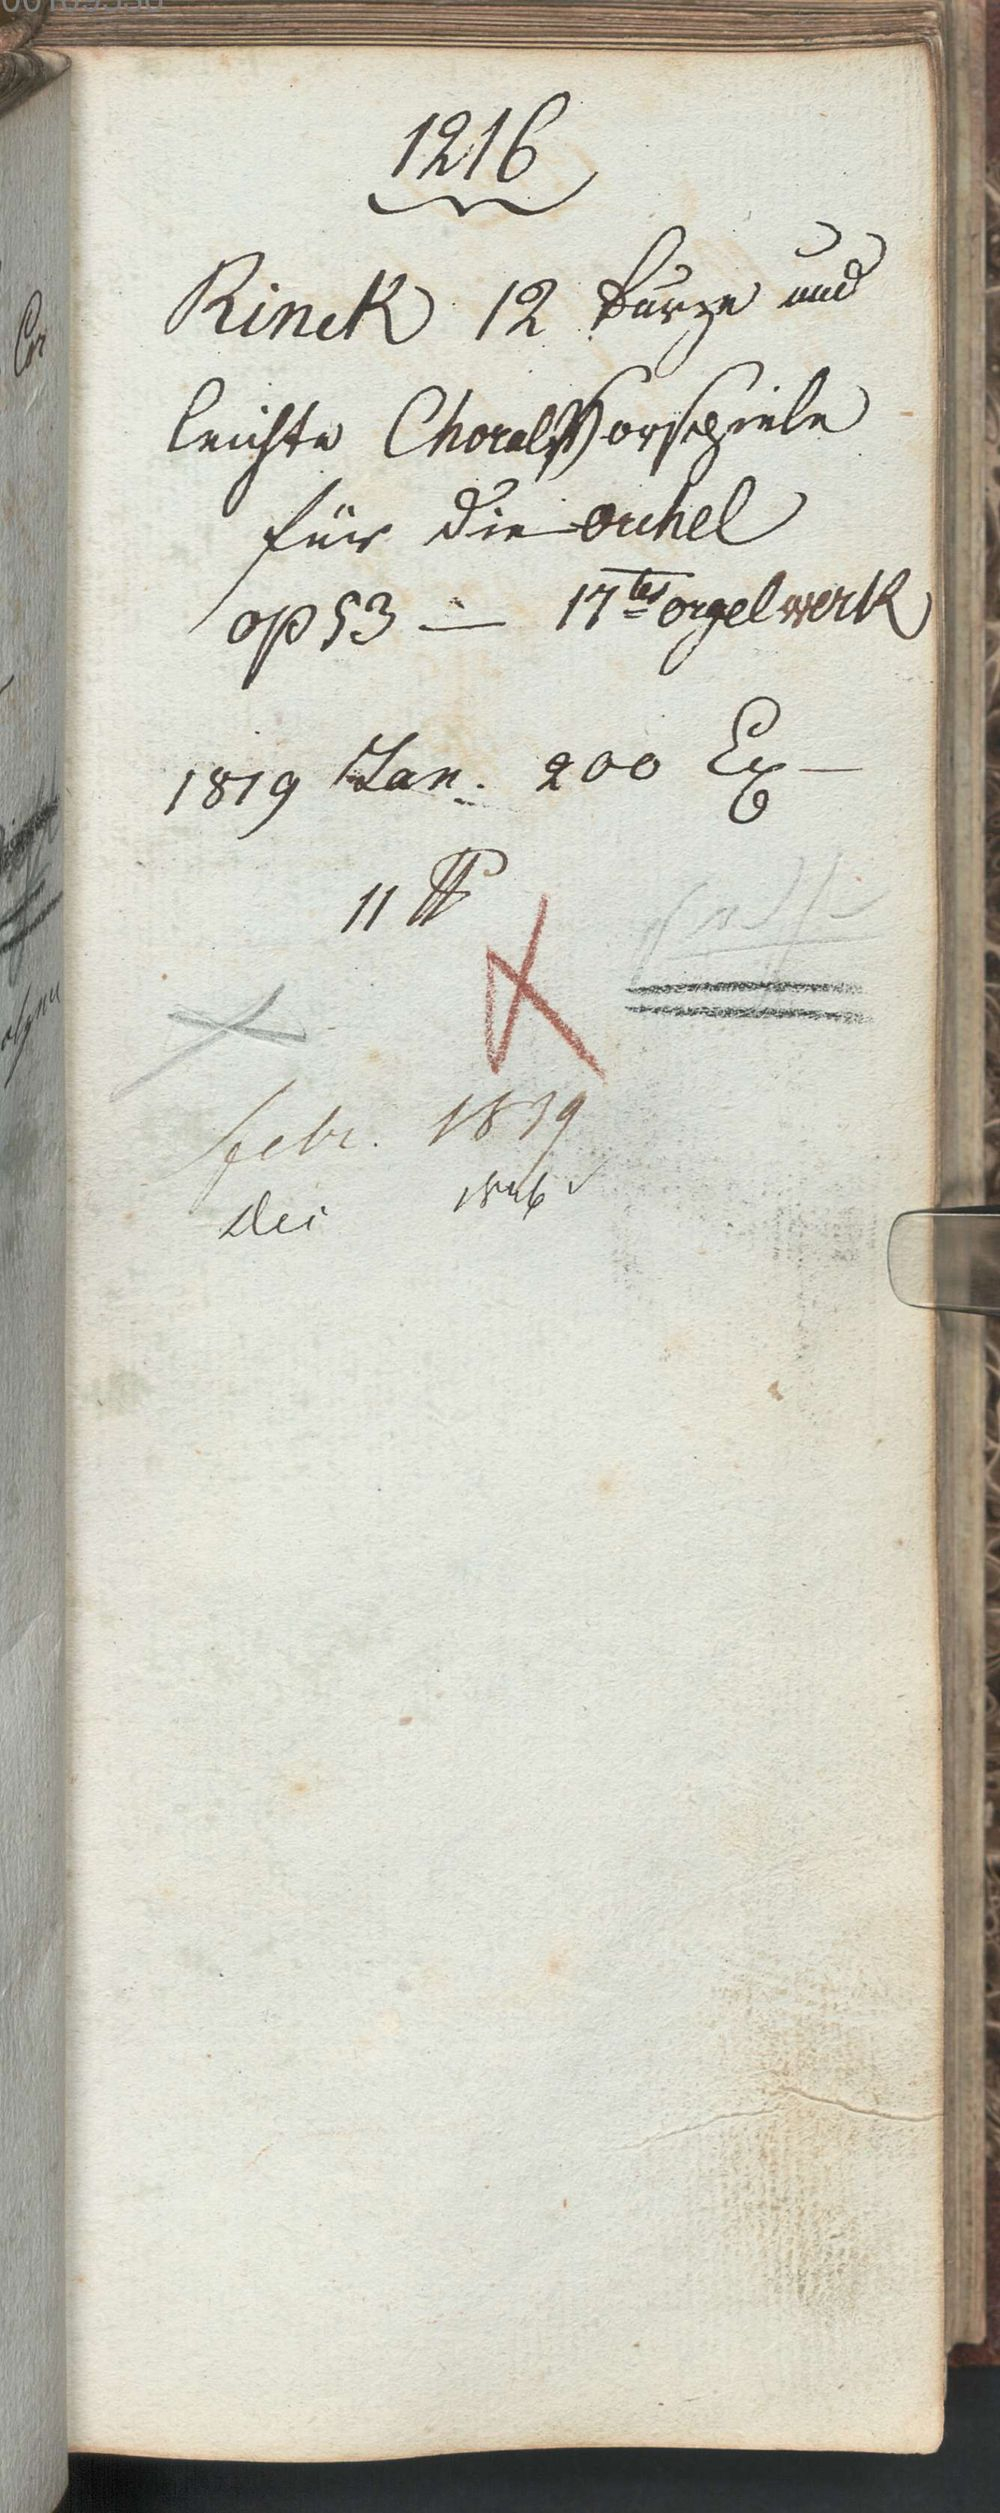 1216
Rinck 12 kurze und
leichte Choral Vorspiele
für die orchel
op 53 — 17tes orgelwerk
1819 Jan. 200 Ex —
11
febr. 1839
Dec 1846